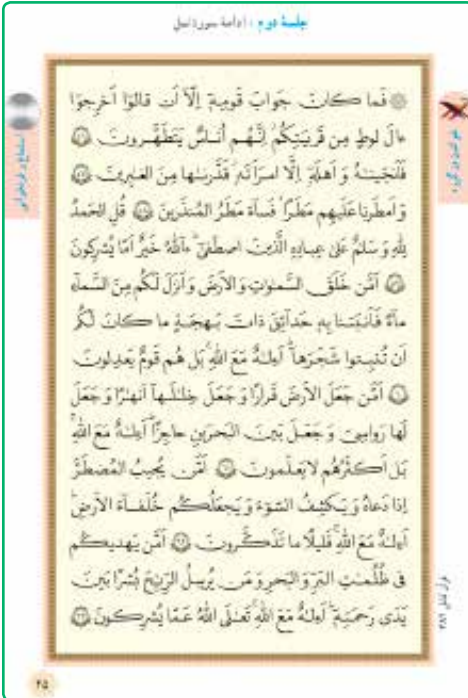 جلسهٔ دوم : ادامهٔ سورهٔ نمل
فَما كانَ جَوابَ قَومِهِ إِلّا أَن قالوا أَخرِجوا
ءالَ لوطٍ مِن قَريَتِكُم إِنَّهُم أُناسٌ يَتَطَهَّرونَ ﴿٥٦﴾
فَأَنجَيناهُ وَ أَهلَهُ إِلَّا امرَأَتَهُ قَدَّرناها مِنَ الغابِرينَ ﴿٥٧﴾
وَ أَمطَرنا عَلَيهِم مَطَرًا فَساءَ مَطَرُ المُنذَرينَ ﴿٥٨﴾ قُلِ الحَمدُ
لِلّٰهِ وَ سَلامٌ عَلىٰ عِبادِهِ الَّذينَ اصطَفىٰ ءاللّٰهُ خَيرٌ أَمّا يُشرِكونَ
﴿٥٩﴾ أَمَّن خَلَقَ السَّماواتِ وَ الأَرضَ وَ أَنزَلَ لَكُم مِنَ السَّماءِ
ماءً فَأَنبَتنا بِهِ حَدائِقَ ذاتَ بَهجَةٍ ما كانَ لَكُم
أَن تُنبِتوا شَجَرَها أَءِلٰهٌ مَعَ اللّٰهِ بَل هُم قَومٌ يَعدِلونَ
﴿٦٠﴾ أَمَّن جَعَلَ الأَرضَ قَرارًا وَ جَعَلَ خِلالَها أَنهارًا وَ جَعَلَ
لَها رَواسِيَ وَ جَعَلَ بَينَ البَحرَينِ حاجِزًا أَءِلٰهٌ مَعَ اللّٰهِ
بَل أَكثَرُهُم لا يَعلَمونَ ﴿٦١﴾ أَمَّن يُجيبُ المُضطَرَّ
إِذا دَعاهُ وَ يَكشِفُ السّوءَ وَ يَجعَلُكُم خُلَفاءَ الأَرضِ
أَءِلٰهٌ مَعَ اللّٰهِ قَليلًا ما تَذَكَّرونَ ﴿٦٢﴾ أَمَّن يَهديكُم
فی ظُلُماتِ البَرِّ وَ البَحرِ وَ مَن يُرسِلُ الرِّياحَ بُشرًا بَينَ
يَدَی رَحمَتِهِ أَءِلٰهٌ مَعَ اللّٰهِ تَعالَى اللّٰهُ عَمّا يُشرِكونَ ﴿٦٣﴾
۲۵